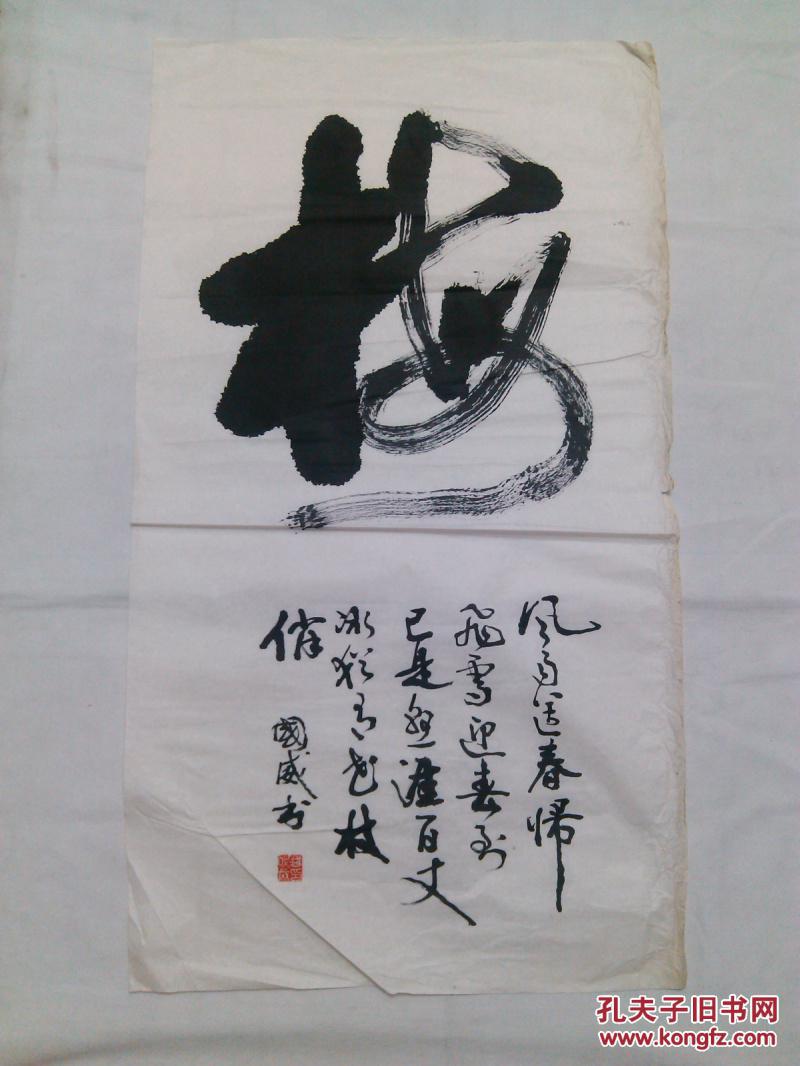 梅
风雨送春归
飞雪迎春到
已是悬涯百丈
冰犹有花枝
俏
國威书
孔夫子旧书网
www.kongfz.com